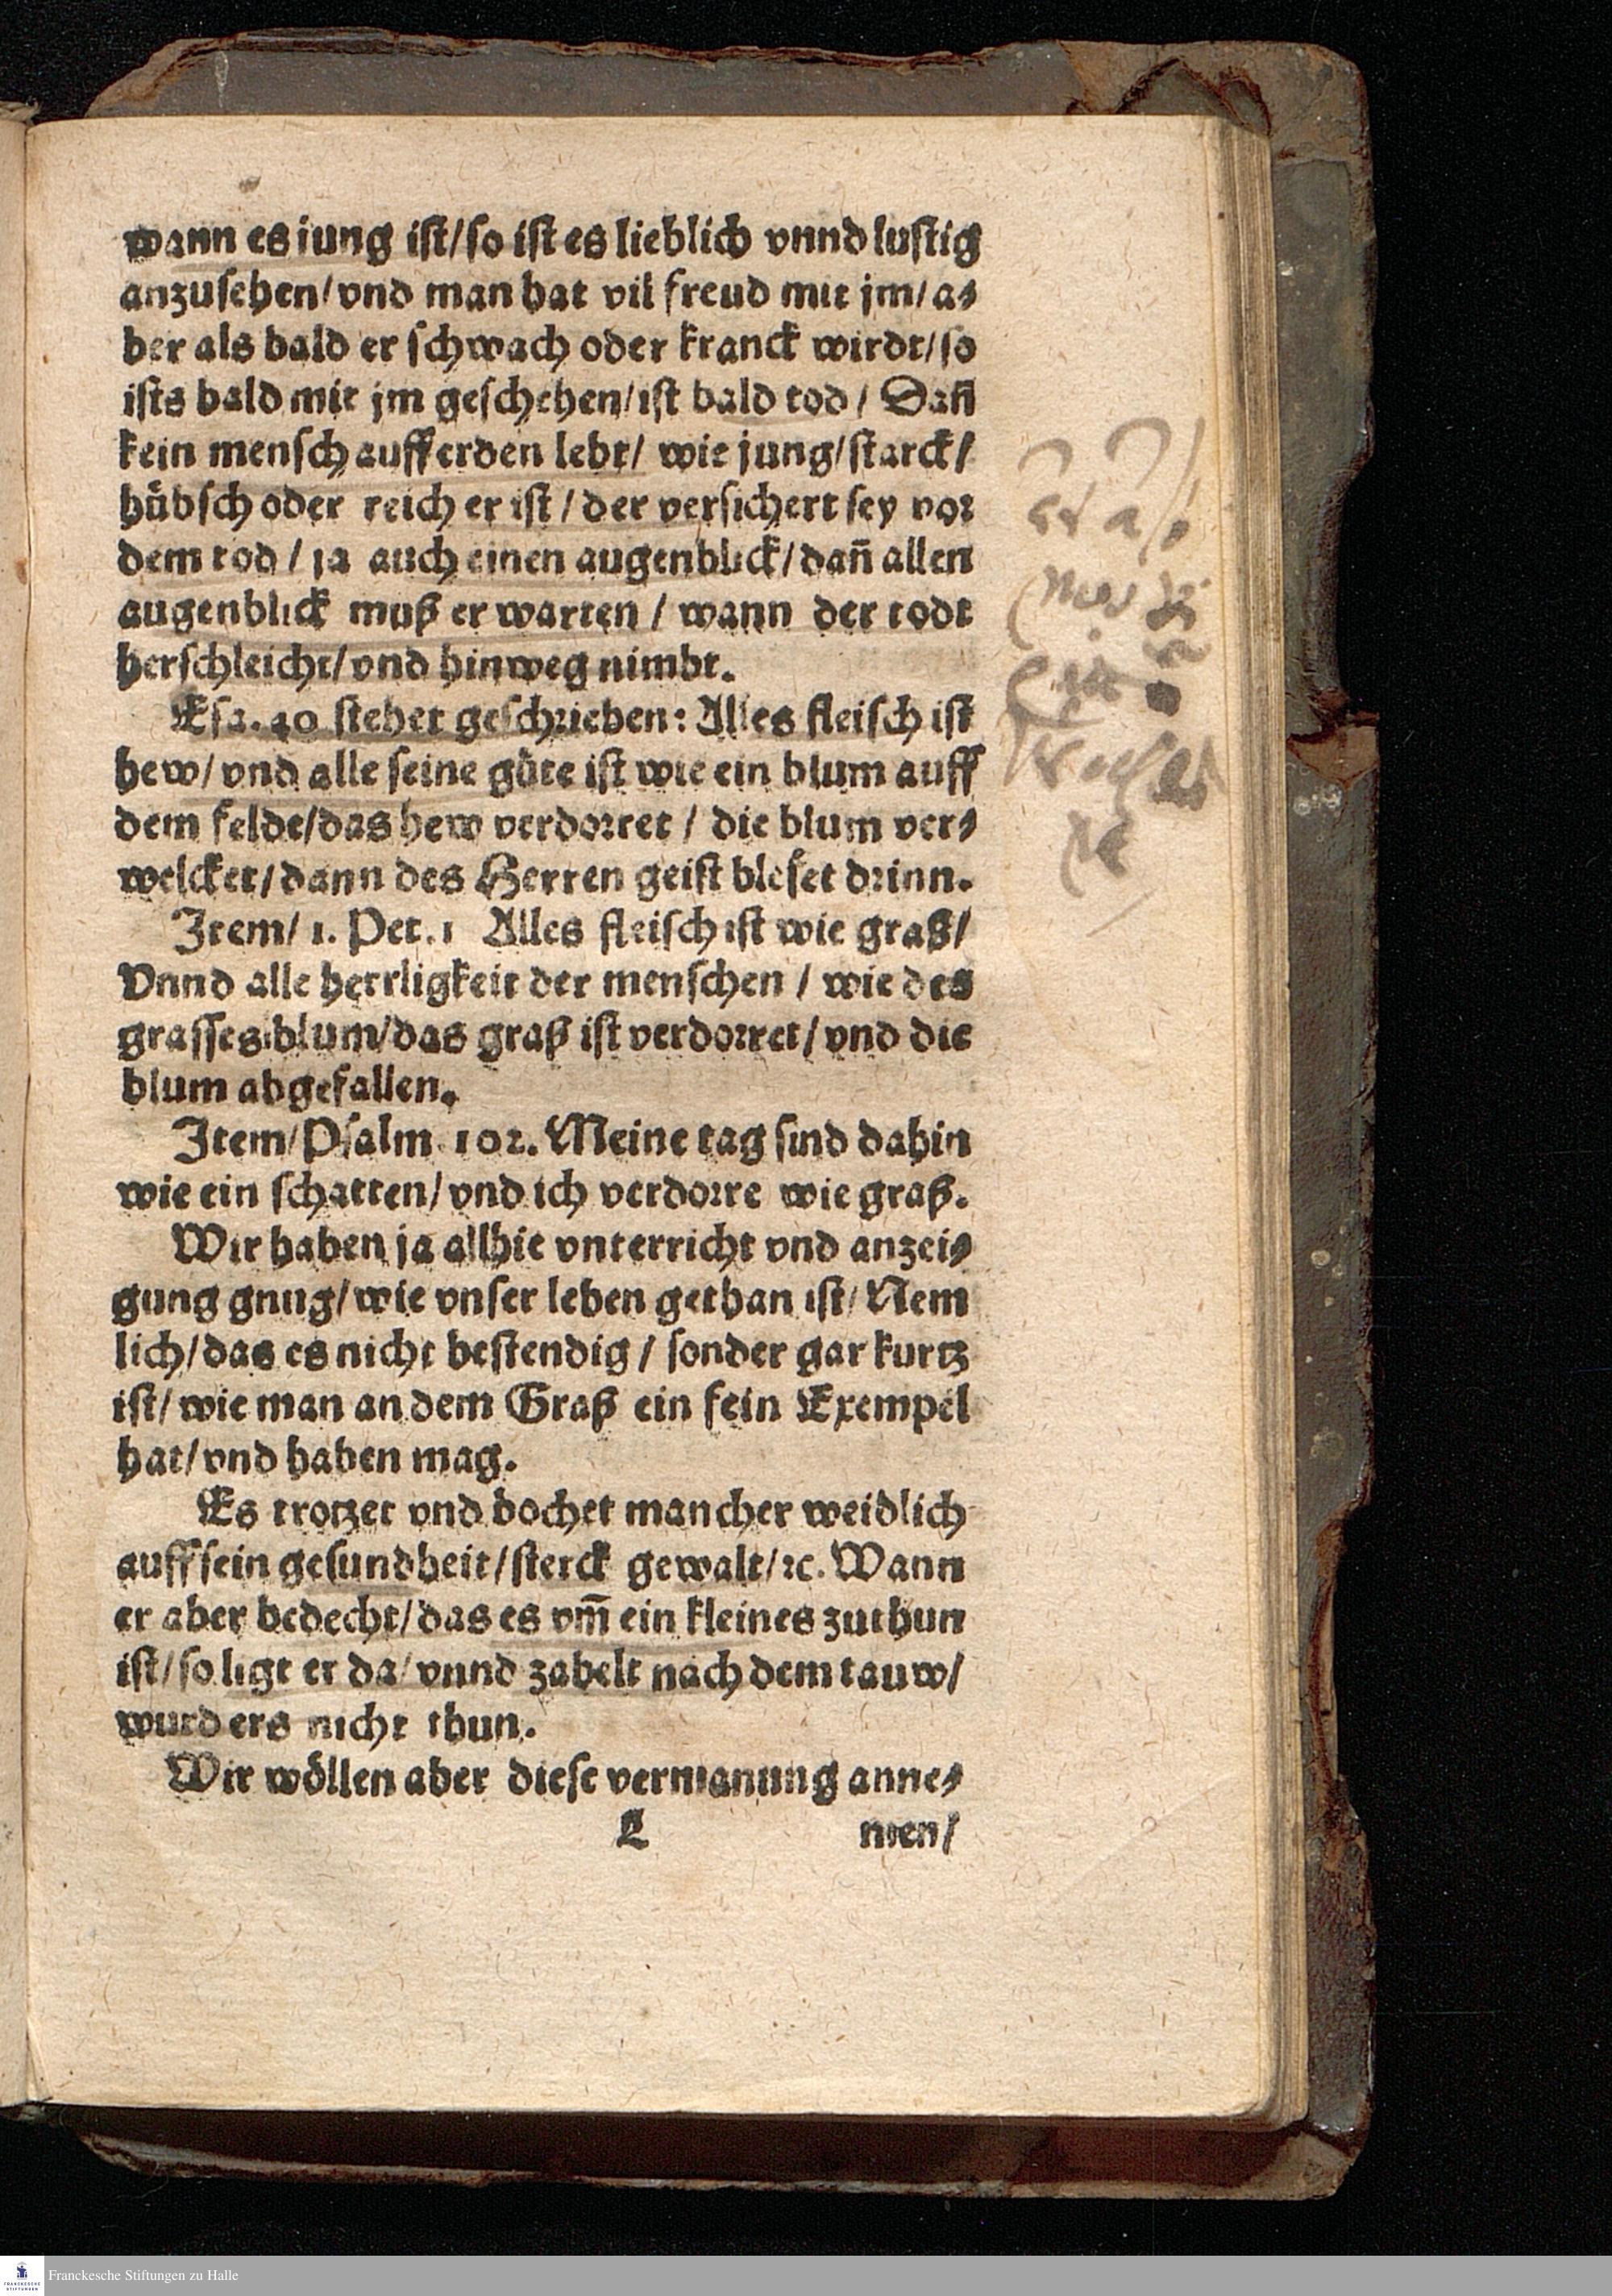 wann es jung ist/so ist es lieblich vnnd lustig
anzusehen/vnd man hat vil freud mit jm/a-
ber als bald er schwach oder kranck wirdt/so
ists bald mit jm geschehen/ist bald tod/ Dañ
kein mensch auff erden lebt/ wie jung/starck/
hübsch oder reich er ist/der versichert sey vor
dem tod/ ja auch einen augenblick/dañ allen
augenblick muß er warten / wann der todt
herschleicht/vnd hinweg nimbt.
Esa. 40 stehet geschrieben: Alles fleisch ist
hew/vnd alle seine güte ist wie ein blum auff
dem felde/das hew verdorret / die blum ver-
welcket/dann des Herren geist bleset drinn.
Item/ 1. Pet. 1 Alles fleisch ist wie graß/
Vnnd alle herrligkeit der menschen / wie des
grasses blum/das graß ist verdorret/vnd die
blum abgefallen.
Item/Psalm 102. Meine tag sind dahin
wie ein schatten/vnd ich verdorre wie graß.
Wir haben ja allhie vnterricht vnd anzei-
gung gnug/wie vnser leben gethan ist/Nem
lich/das es nicht bestendig / sonder gar kurtz
ist/wie man an dem Graß ein fein Exempel
hat/vnd haben mag.
Es trotzet vnd bochet mancher weidlich
auff sein gesundheit/sterck gewalt/ꝛc. Wann
er aber bedecht/das es vm̃ ein kleines zuthun
ist/so ligt er da/vnnd zabelt nach dem tauw/
wurd ers nicht thun.
Wir wöllen aber diese vermanung anne-
L men/
Franckesche Stiftungen zu Halle
FRANCKESCHE
STIFTUNGEN